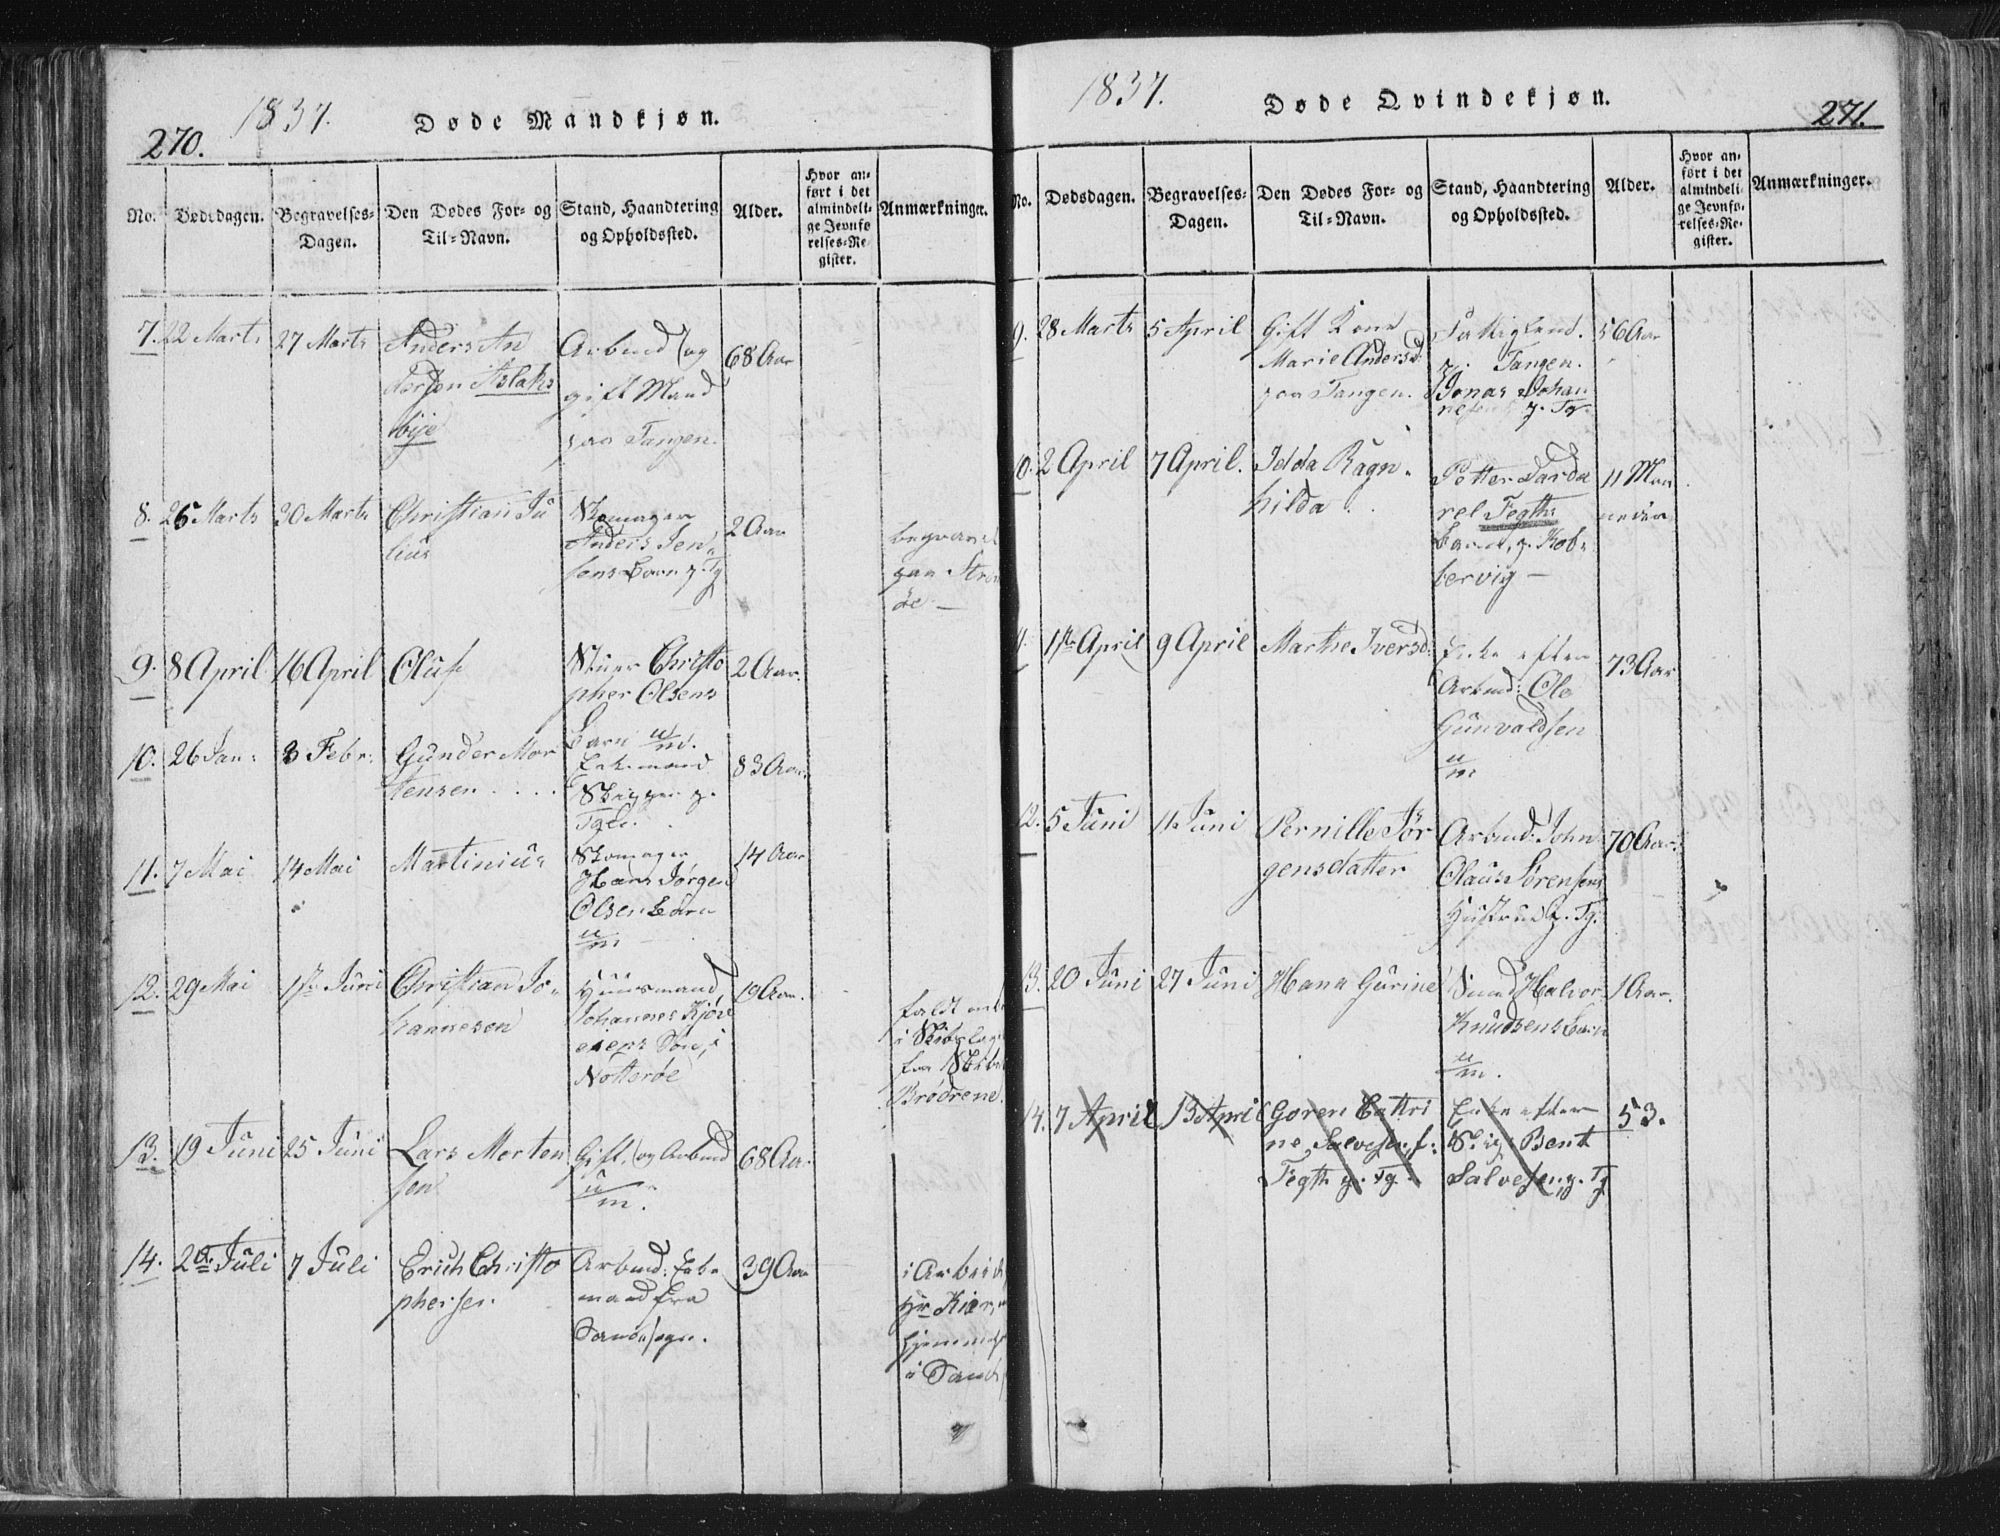 270.
1837.
Døde Mandkjøn.
No.
Dødsdagen.
Begravelses-
Dagen.
Den Dødes For- og
Til-Navn.
Stand, Haandtering
og Opholdssted.
Alder.
Hvor an-
ført i det
almindeli-
ge Jevnfø-
relses-Re-
gister.
Anmærkninger.
7. 22 Marts
27 Marts
Anders An
dersen Aslaks
bye
Arbmd og
gift Mand
paa Tangen.
68 Aar
8. 26 Marts
30 Marts
Christian Ju
lius
Skomager
Anders Jen
sens Barn p. Tg
2 Aar
begravet
paa Strøm
øe —
9. 8 April
16 April
Oluf
Skipper Christo
pher Olsens
Barn u/m.
2 Aar.
10. 26 Jan:
3 Febr:
Gunder Mor
tensen . . . .
Enkemand
Skipper p.
Tg.
83 Aar.
11. 7 Mai
14 Mai
Martinius
Skomager
Hans Jørgen
Olsen Barn
u/m
14 Aar
12. 29 Mai
1ste Juni
Christian Jo-
hannesen
Huusmand
Johannes
Søn, i
Notterøe
19 Aar.
faldt
i
fra Skibet
Brødrene.
13. 19 Juni
25 Juni
Lars Morten
sen
Gift, og Arbmd
u/m.
68 Aar.
14. 2de Juli
7 Juli
Erich Christo
phersen
Arbmd: Enke
mand fra
Sande sogn.
39 Aar
i Arbeide
Hr Kiær,
hjemme
i Sande
1837.
Døde Qvindekjøn.
271.
No.
Dødsdagen.
Begravelses-
Dagen.
Den Dødes For- og
Til-Navn.
Stand, Haandtering
og Opholdssted.
Alder.
Hvor an-
ført i det
almindeli-
ge Jevnfø-
relses-Re-
gister.
Anmærkninger.
9. 28 Marts
5 April
Gift Kone
Marie Andersd:
paa Tangen.
p. Tangen.
Jonas Johan
nesens p. Tg.
56 Aar
10. 2 April
7 April.
Idda Ragn-
hilda
Petter Tarda
rel Fegths
Barn, p. Kob-
bervig —
11 Maa
neder
11. 1ste April
9 April
Marthe Iversd:
Enke efter
Arbmd: Ole
Gunvaldsen
u/m
73 Aar
12. 5 Juni
11 Juni
Pernille Jør
gensdatter
Arbmd: John
Claus Sørensens
Hustrue p. Tg.
70 Aar.
13. 20 Juni
27 Juni
Hana Gurine
Smed Halvor
Knudsens Barn
u/m.
1 Aar.
14. 7 April
13 April
Goren Cathri
ne Salvesen, f:
Fegth p. Tg.
Enke efter
Skip: Bent
Salvesen p. Tg
53.